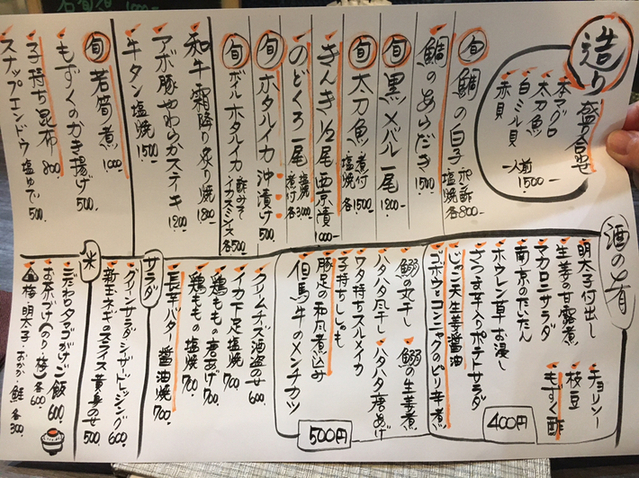 造り盛り合せ
本マグロ
太刀魚
白ミル貝
赤貝
一人前
1500-
旬 鯛の白子 ポン酢 塩焼 各800
鯛のあらだき 1500
旬 太刀魚 煮付 塩焼 1500-
旬 黒メバル一尾 1200-
きんき1/2尾 西京漬 1000-
のどぐろ一尾 塩焼 煮付 各3000
旬 ホタルイカ沖漬け 500
旬 ボイルホタルイカ 酢みそ 各500
和牛霜降り炙り焼 1800
アボ豚やわらかステーキ 1200
牛タン塩焼 1500
旬 若筍煮 1000
もずくのかき揚げ 500
子持ち昆布 800
スナップエンドウ 塩ゆで 500
酒の肴
明太子付出し
生姜の甘露煮
マカロニサラダ
南京のたいたん
ホウレン草お浸し
さつま芋入りポテトサラダ
じゃこ天生姜醤油
ゴボウとコンニャクのピリ辛煮
チョリソー
枝豆
もずく酢
400円
鰯の丸干し
鰯の生姜煮
ハタハタ丸干し
ハタハタ唐あげ
ワタ持ちスルメイカ
子持ちししゃも
豚足の和風煮込み
但馬牛のメンチカツ
500円
クリームチーズ酒盗のせ 600
イカ下足塩焼 700
鶏ももの唐あげ 700
鶏ももの塩焼 700
長芋バター醤油焼 700
サラダ
グリーンサラダシーザードレッシング 600
新玉ネギのスライス黄身のせ 500
米
こだわりタマゴかけご飯 600
お茶づけ(のり 梅) 各600
梅 明太子 おかか 鮭 各300